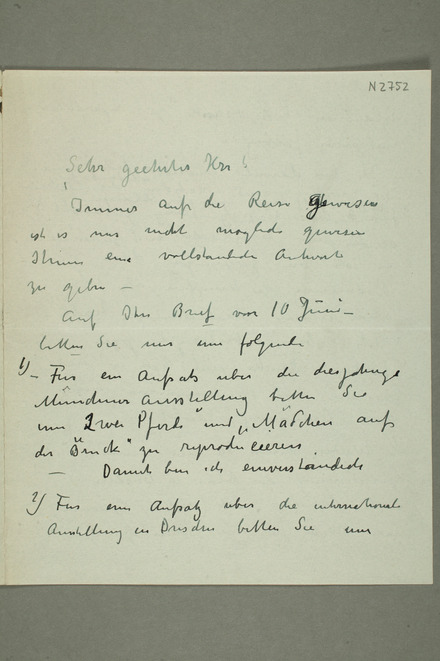 N2752
Sehr geehrter Herr!
Immer auf die Reise gewesen
ist es mir nicht möglich gewesen
Ihnen eine vollständige Antwort
zu geben –
Auf Ihr Brief von 10 Juni –
bitten Sie mir um folgende
1) – Für ein Aufsatz uber die diesjahrige
Münchner Ausstellung bitten Sie
um „Zwei Pferde" und „Mädchen auf
der Brück" zu reproducieren
– Damit bin ich einverstanden
2) Für ein Aufsatz uber die internationale
Ausstellung in Dresden bitten Sie um